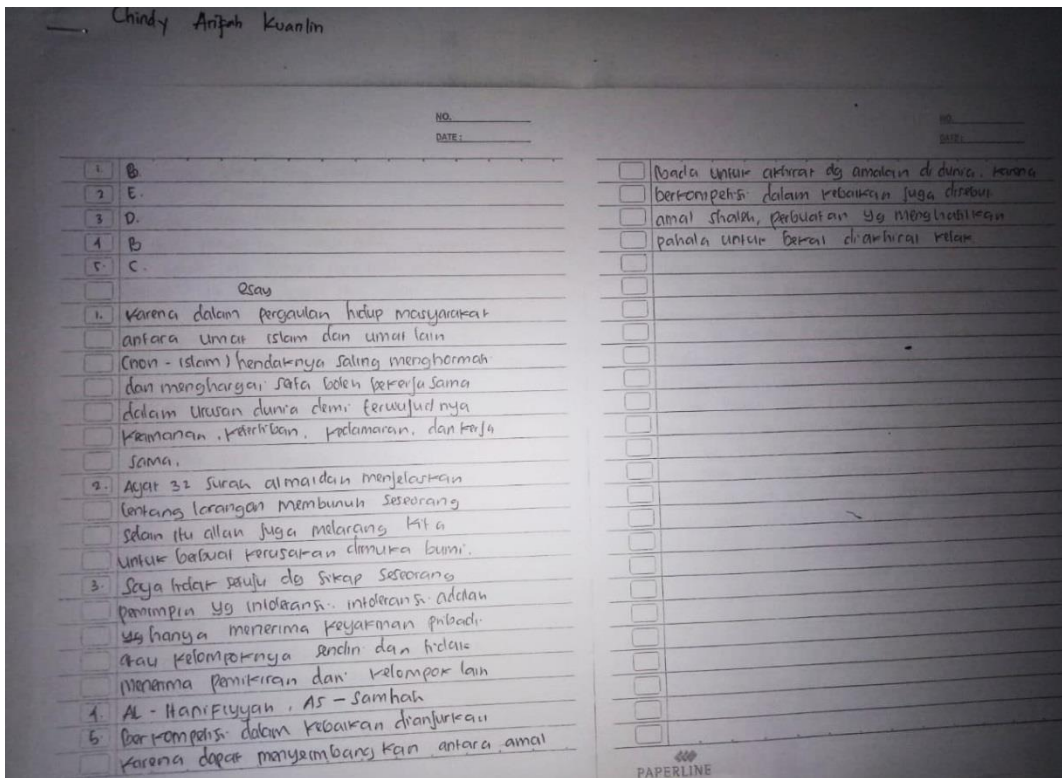 Chindy Arifah Kuanlin
NO.
DATE:
1. B.
2 E.
3 D.
4 B
5. C.
esay
1. Karena dalam pergaulan hidup masyarakat
antara umat islam dan umat lain
(non-islam) hendaknya saling menghormati
dan menghargai serta boleh bekerja sama
dalam urusan dunia demi terwujudnya
keamanan, ketertiban, kedamaran, dan kerja
sama.
2. Ayat 32 surah almaidah menjelaskan
tentang larangan membunuh seseorang
selain itu allah juga melarang kita
untuk berbuat kerusakan dimuka bumi.
3. Saya tidak setuju dg sikap seseorang
pemimpin yg intoleransi. intoleransi adalah
yg hanya menerima keyakinan pribadi
atau kelompoknya sendiri dan tidak
menerima pemikiran dari kelompok lain
4. AL-Hanifiyyah, AS-Samhah
5 Berkompetisi dalam kebaikan dianjurkan
karena dapat menyeimbangkan antara amal
NO.
DATE:
untuk akhirat dg amalan di dunia, karena
berkompetisi dalam kebaikan juga disebut
amal shaleh, perbuatan yg menghasilkan
pahala untuk bekal diakhirat kelak
PAPERLINE